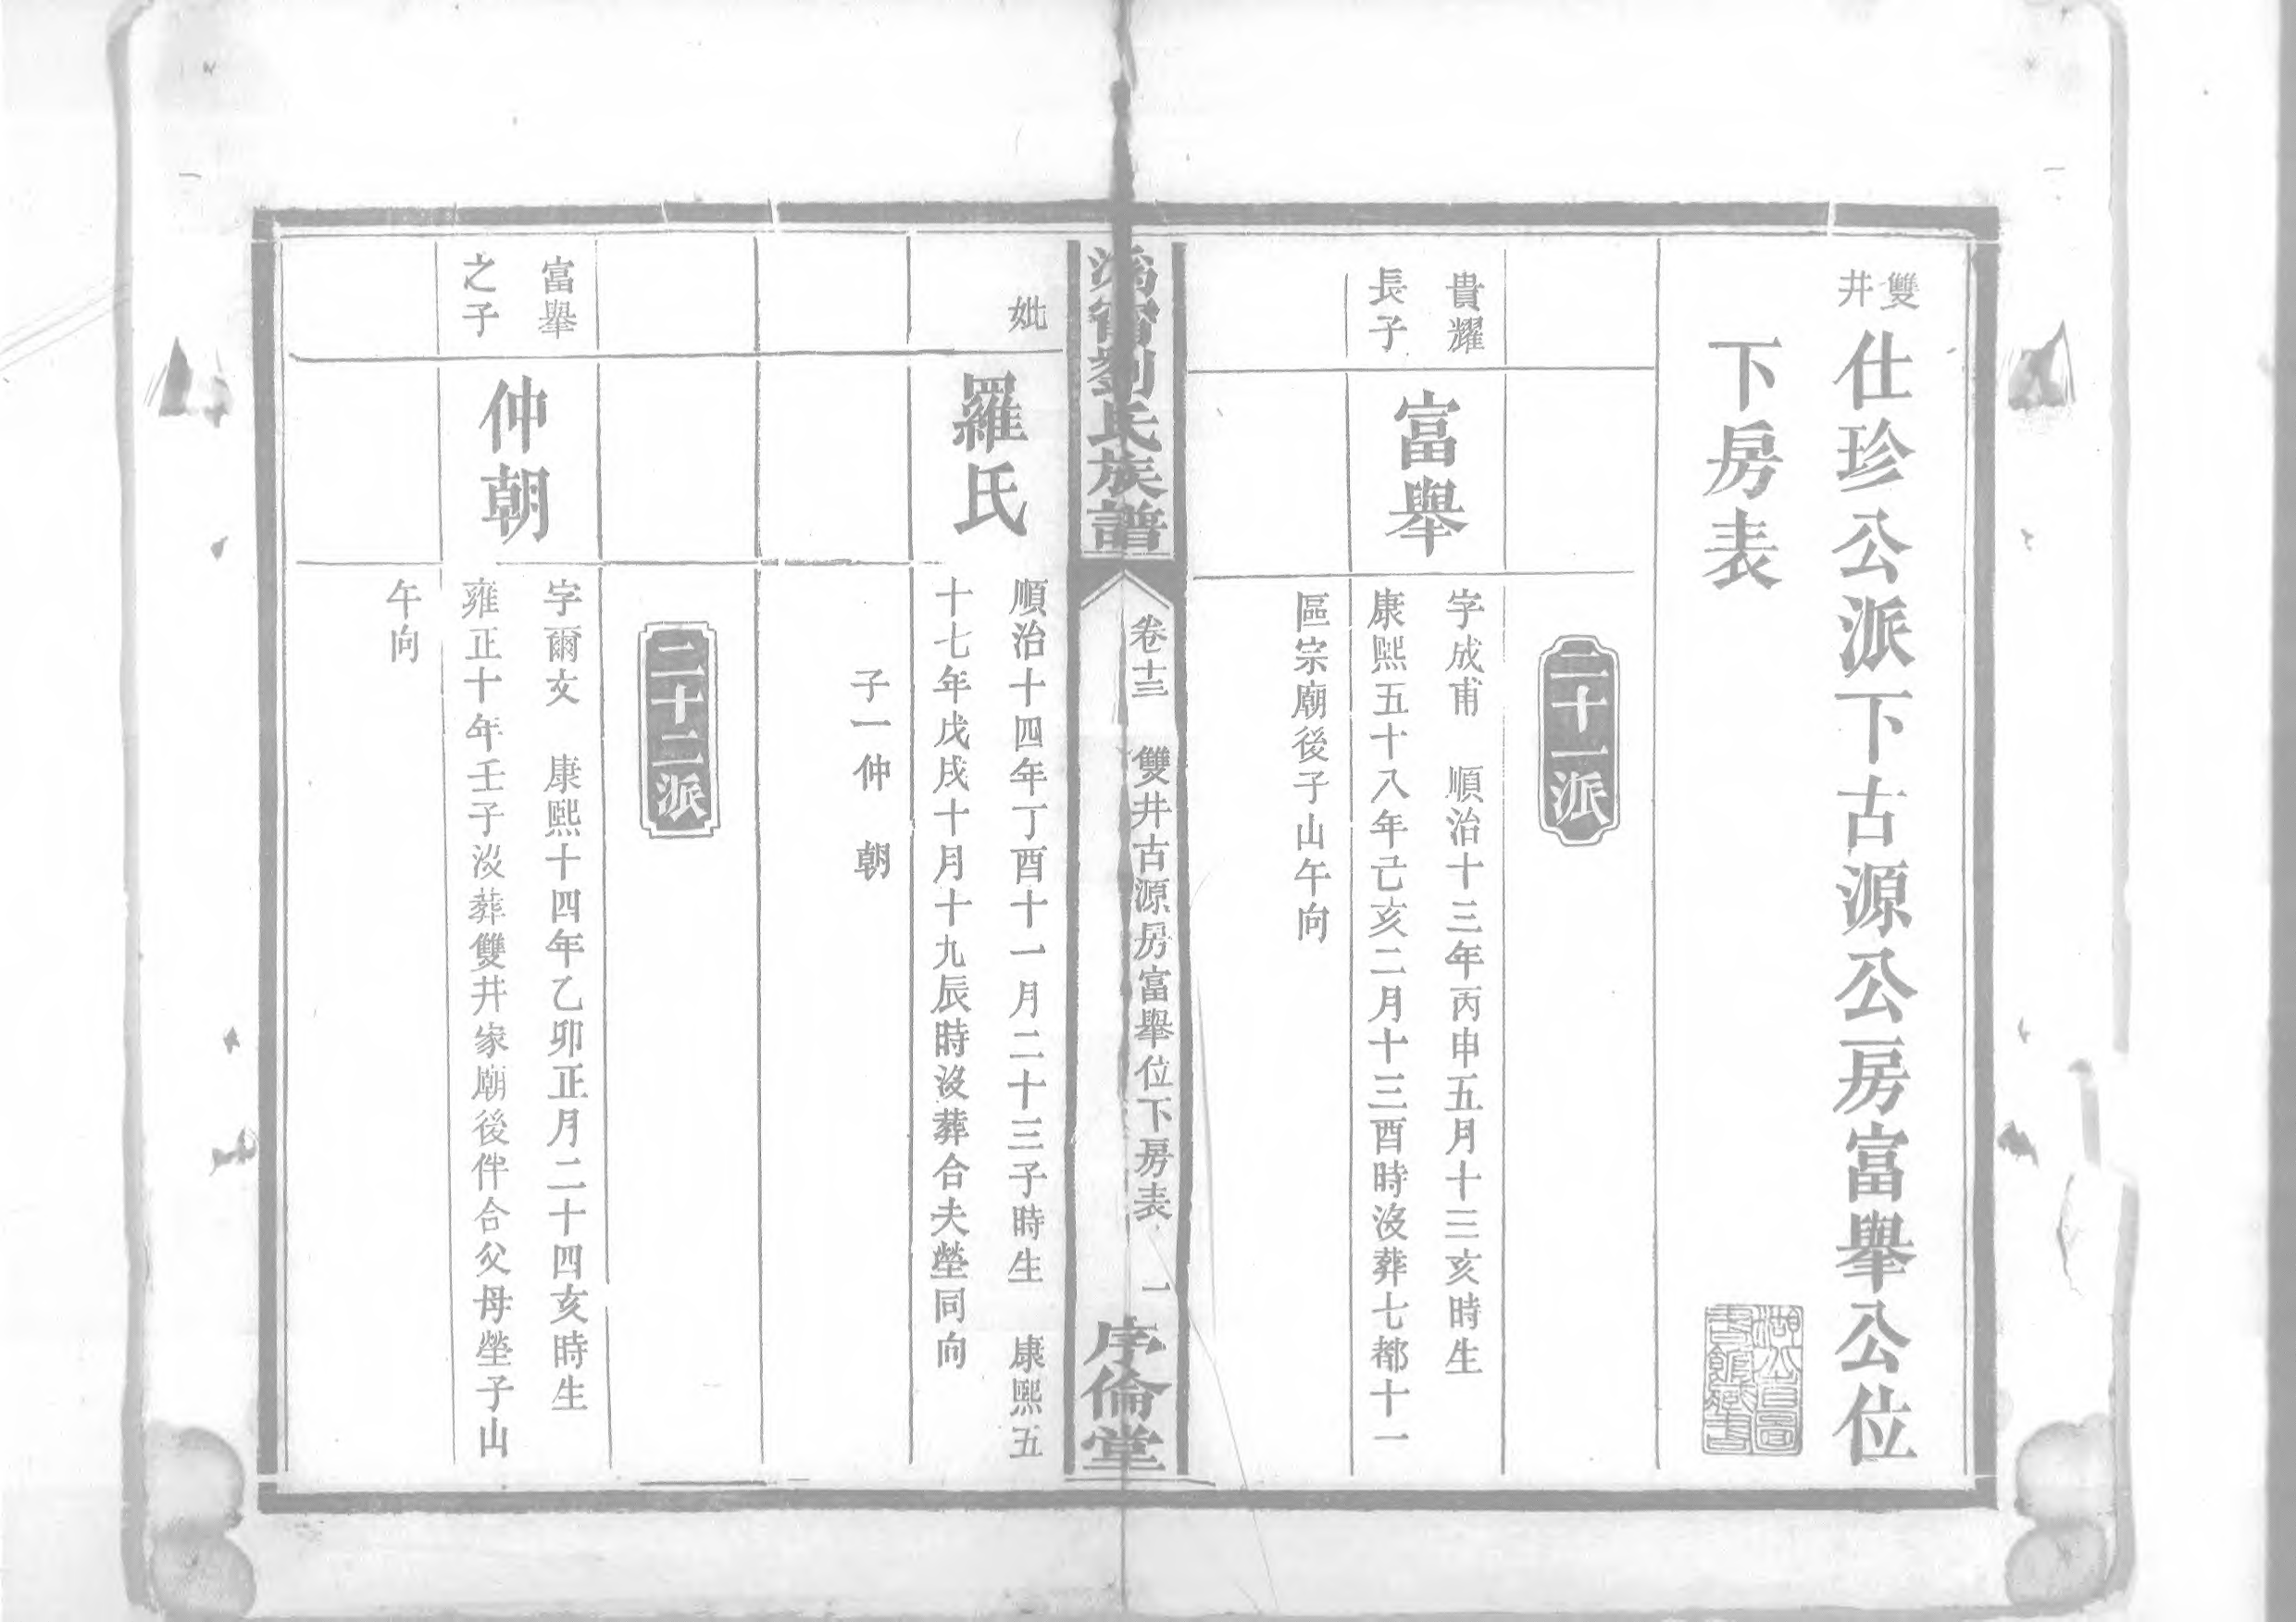 雙井仕珍公派下古源公房富舉公位
下房表
二十一派
貴耀
長子
富舉
字成甫 順治十三年丙申五月十三亥時生
康熙五十八年己亥二月十三酉時沒葬七都十一
區宗廟後子山午向
溈甯劉氏族譜
卷十三 雙井古源房富舉位下房表 一
序倫堂
妣
羅氏
順治十四年丁酉十一月二十三子時生 康熙五
十七年戊戌十月十九辰時沒葬合夫塋同向
子一仲 朝
二十二派
富舉
之子
仲朝
字爾文 康熙十四年乙卯正月二十四亥時生
雍正十年壬子沒葬雙井家廟後伴合父母塋子山
午向